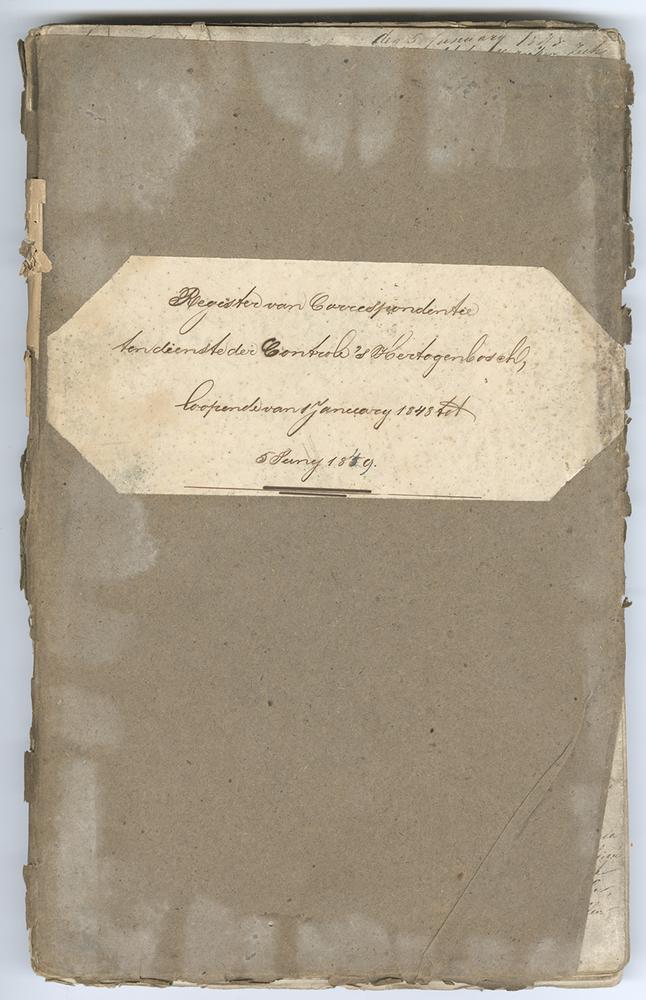 den 5 January 1843
Register van Correspondentie
ten dienste der Controle 's Hertogenbosch,
loopende van 1 January 1843 tot
5 Juny 1849.